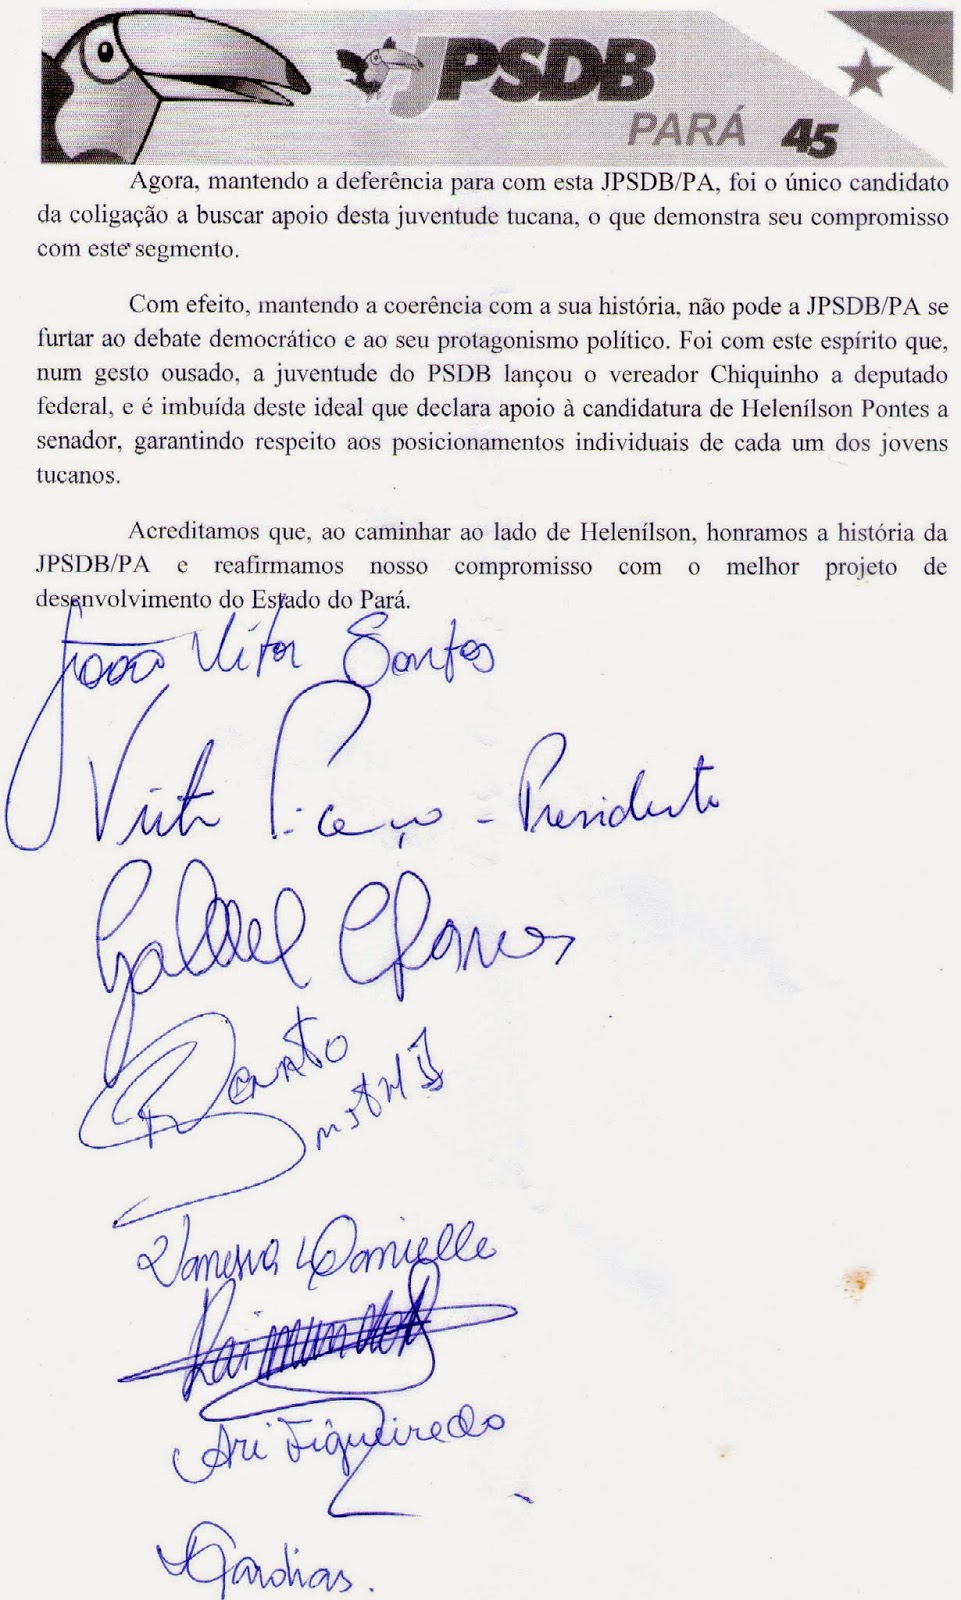 JPSDB
PARÁ 45
Agora, mantendo a deferência para com esta JPSDB/PA, foi o único candidato
da coligação a buscar apoio desta juventude tucana, o que demonstra seu compromisso
com este segmento.
Com efeito, mantendo a coerência com a sua história, não pode a JPSDB/PA se
furtar ao debate democrático e ao seu protagonismo político. Foi com este espírito que,
num gesto ousado, a juventude do PSDB lançou o vereador Chiquinho a deputado
federal, e é imbuída deste ideal que declara apoio à candidatura de Helenílson Pontes a
senador, garantindo respeito aos posicionamentos individuais de cada um dos jovens
tucanos.
Acreditamos que, ao caminhar ao lado de Helenílson, honramos a história da
JPSDB/PA e reafirmamos nosso compromisso com o melhor projeto de
desenvolvimento do Estado do Pará.
João Vitor Santos
Victor Picanço - Presidente
Gabriel
Renato
Vanessa Danielle
Raimundo
Ari Figueiredo